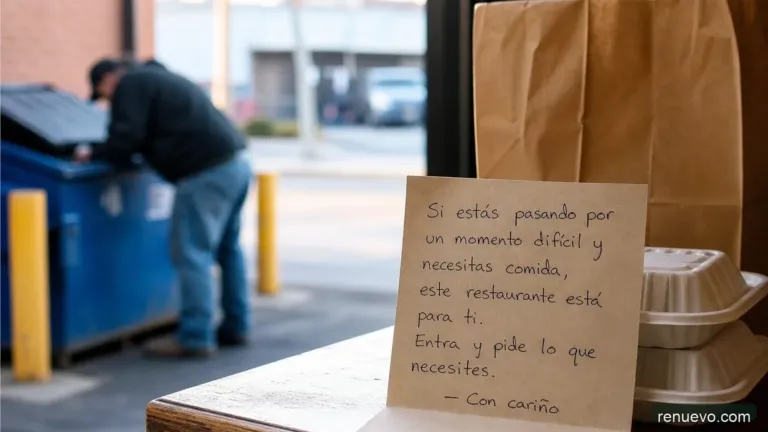 Si estás pasando por
un momento difícil y
necesitas comida,
este restaurante está
para ti.
Entra y pide lo que
necesites.
— Con cariño
renuevo.com